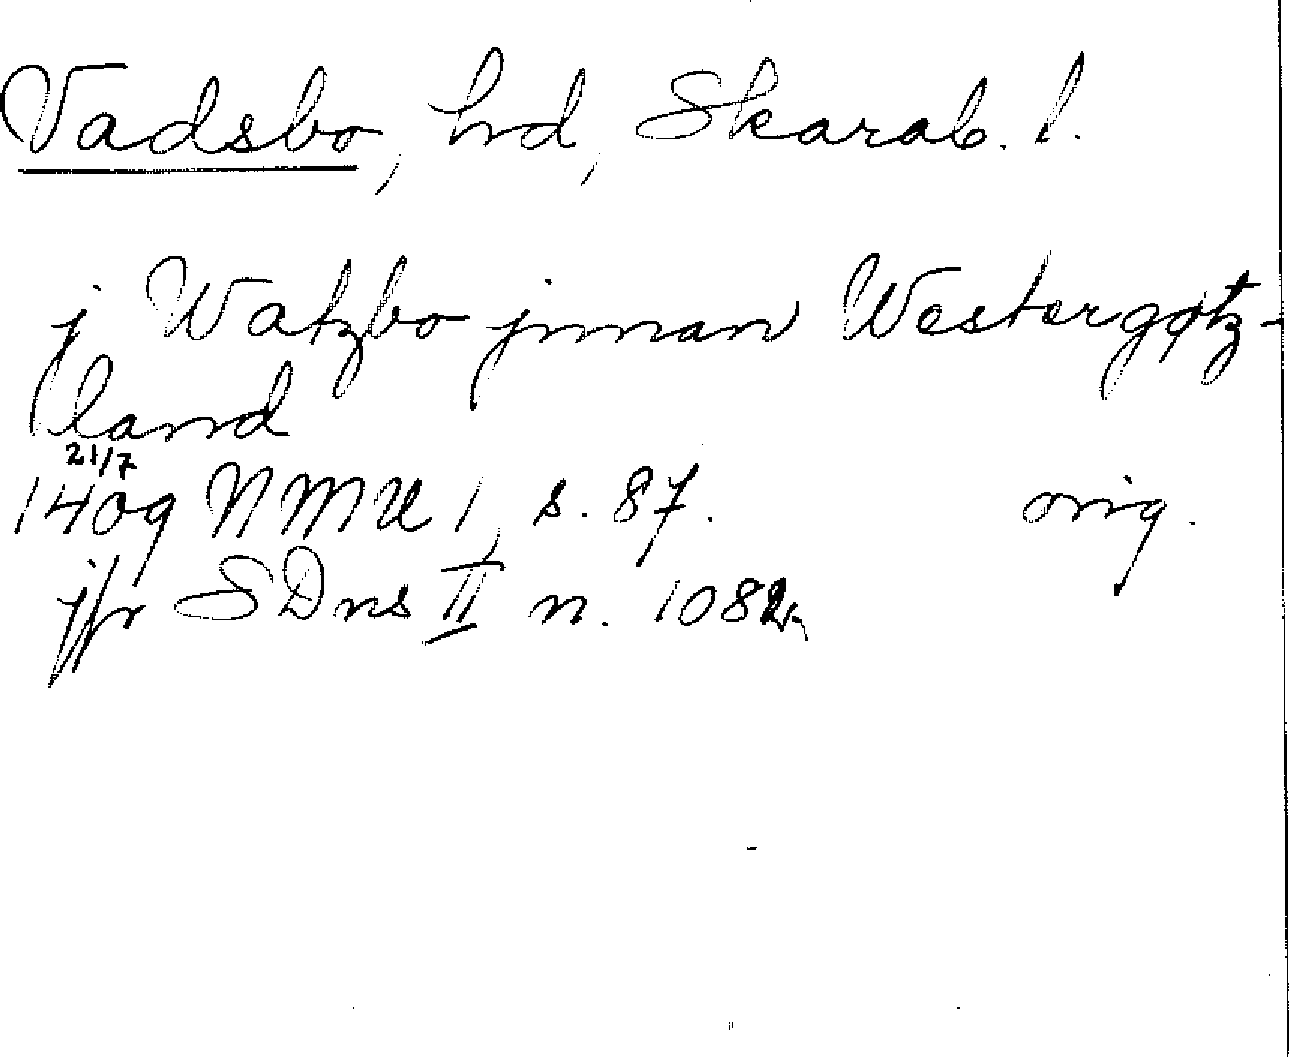 Vadsbo, hd, Skarab. l.
j Watzbo jnnan Westergøtz-
land
21/7
1409 NMU 1, s. 87. orig.
jfr SDns II n. 1082.